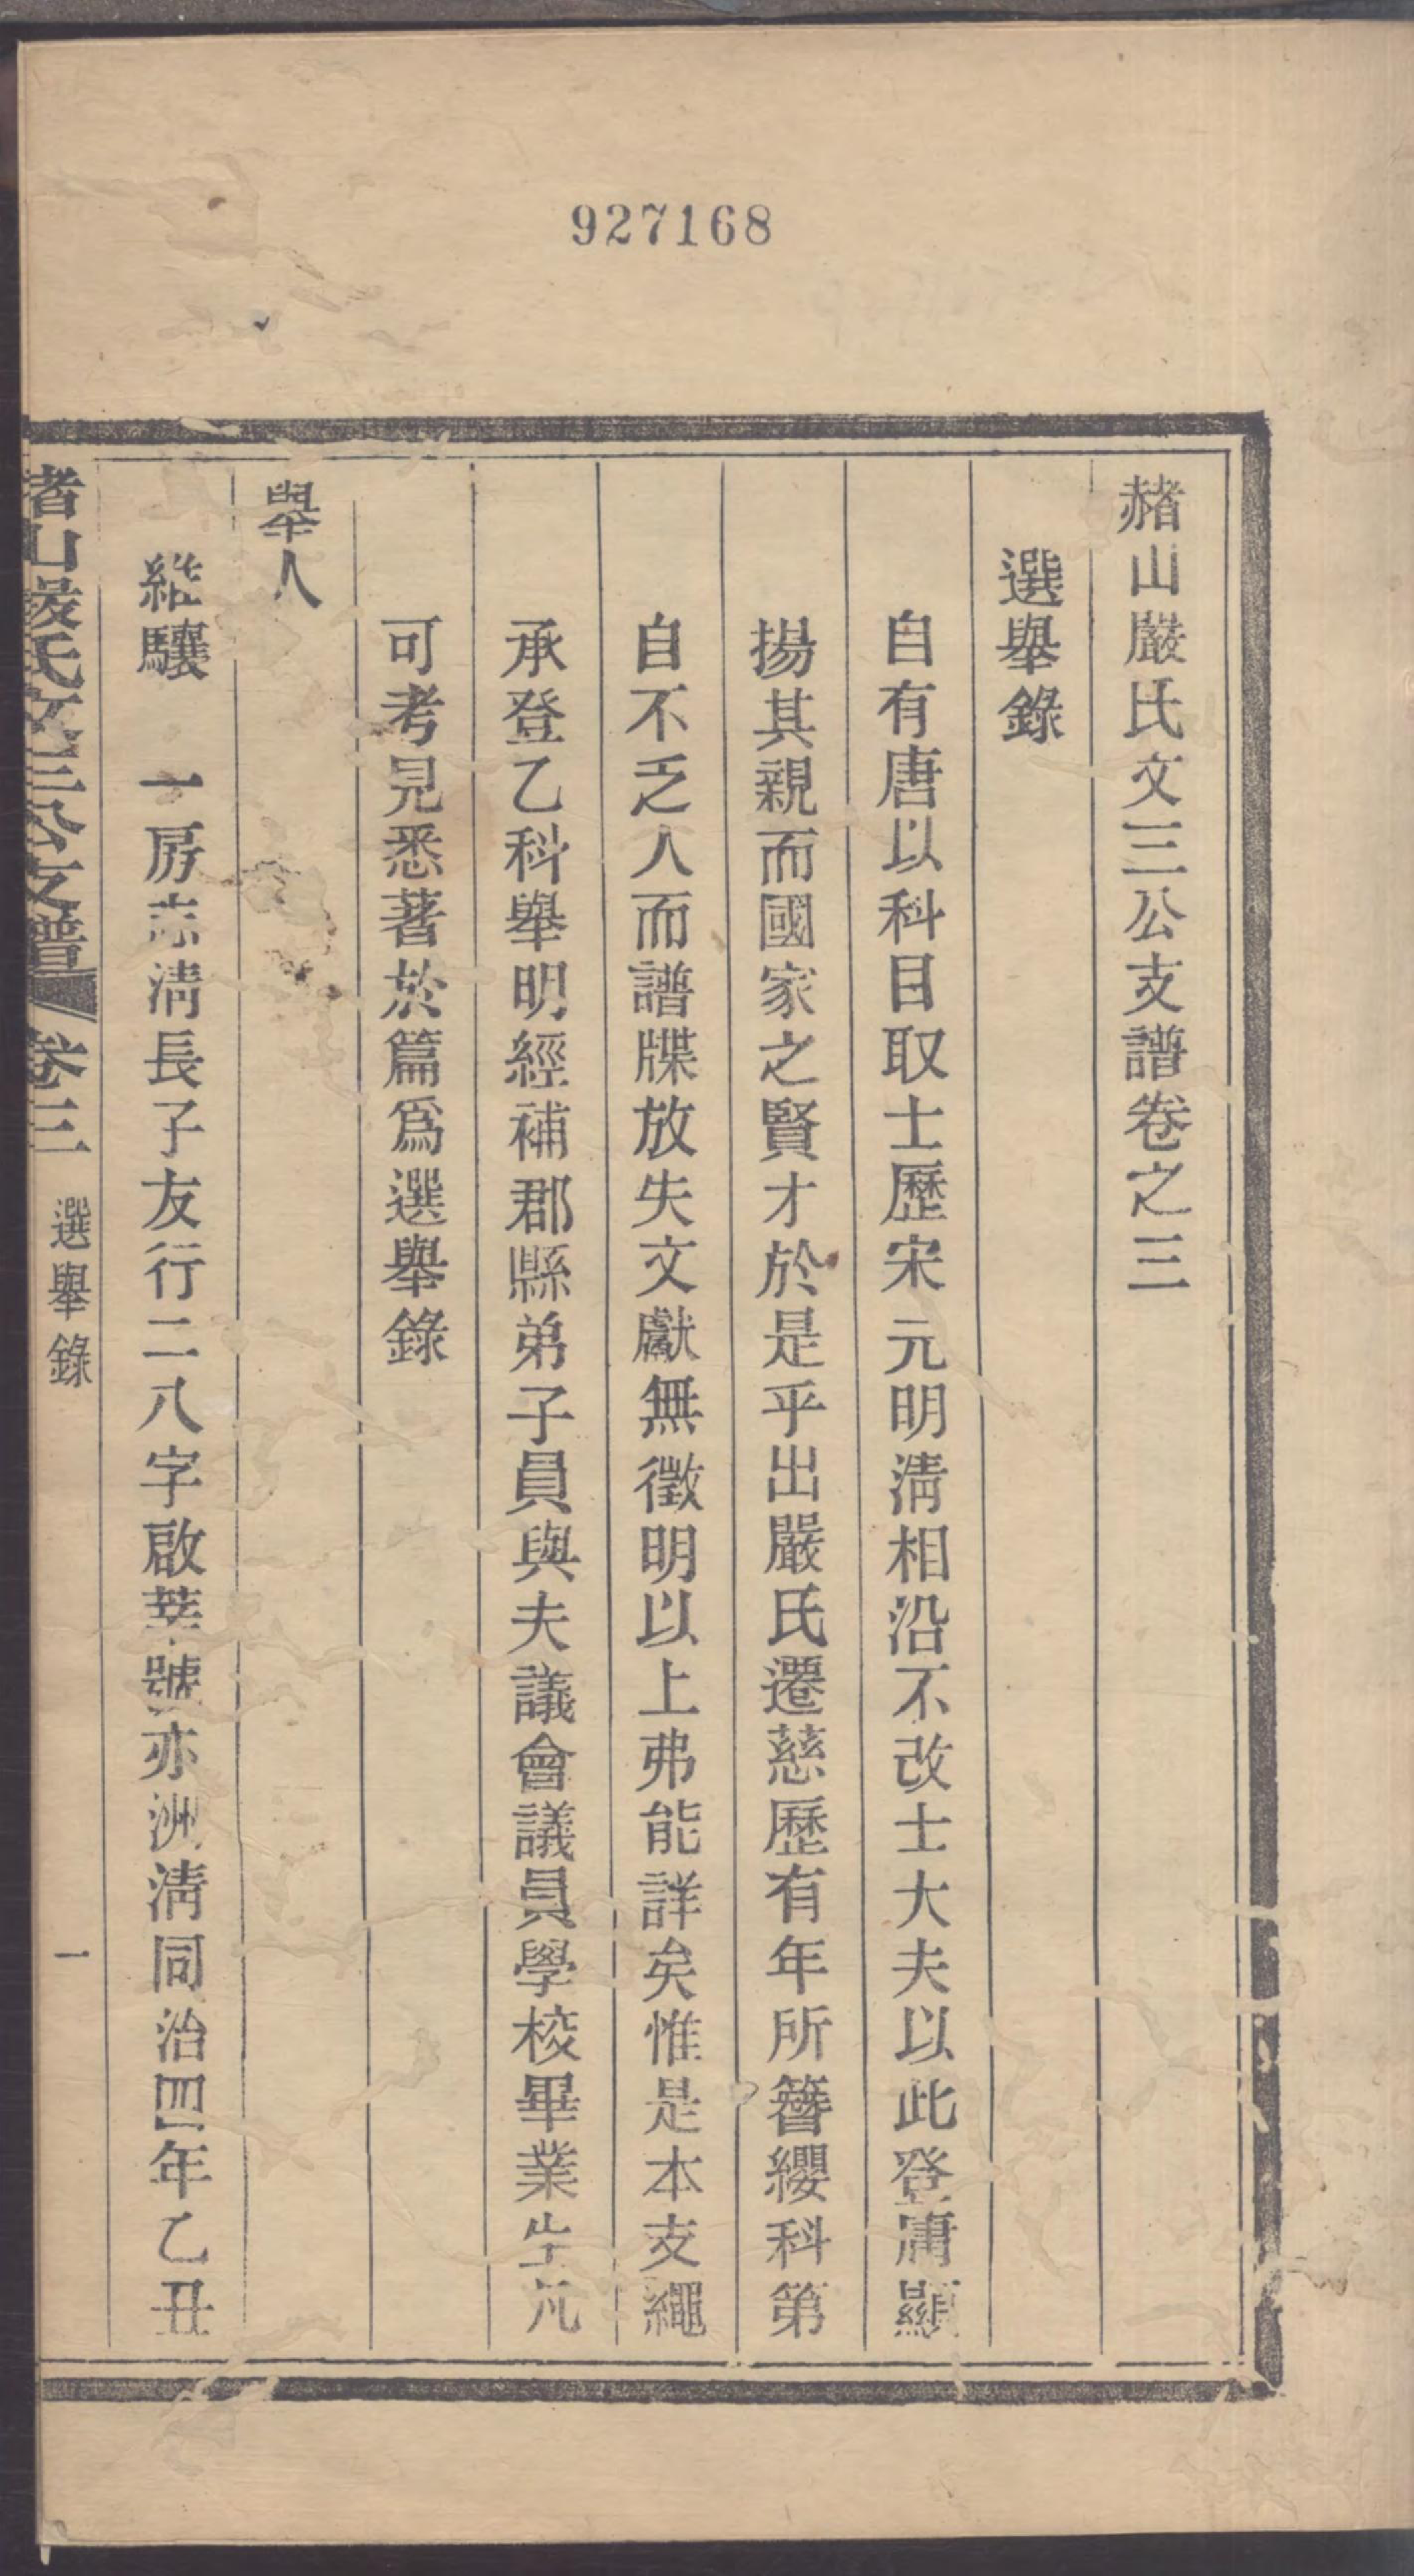 927168
赭山嚴氏文三公支譜卷之三
選舉錄
自有唐以科目取士歷宋元明淸相沿不改士大夫以此登庸顯
揚其親而國家之賢才於是乎出嚴氏遷慈歷有年所簪纓科第
自不乏人而譜牒放失文獻無徵明以上弗能詳矣惟是本支繩
承登乙科舉明經補郡縣弟子員與夫議會議員學校畢業生凡
可考見悉著於篇爲選舉錄
舉人
繼驤 一房志淸長子友行二八字啟莘號亦洲淸同治四年乙丑
赭山嚴氏文三公支譜 卷三 選舉錄 一